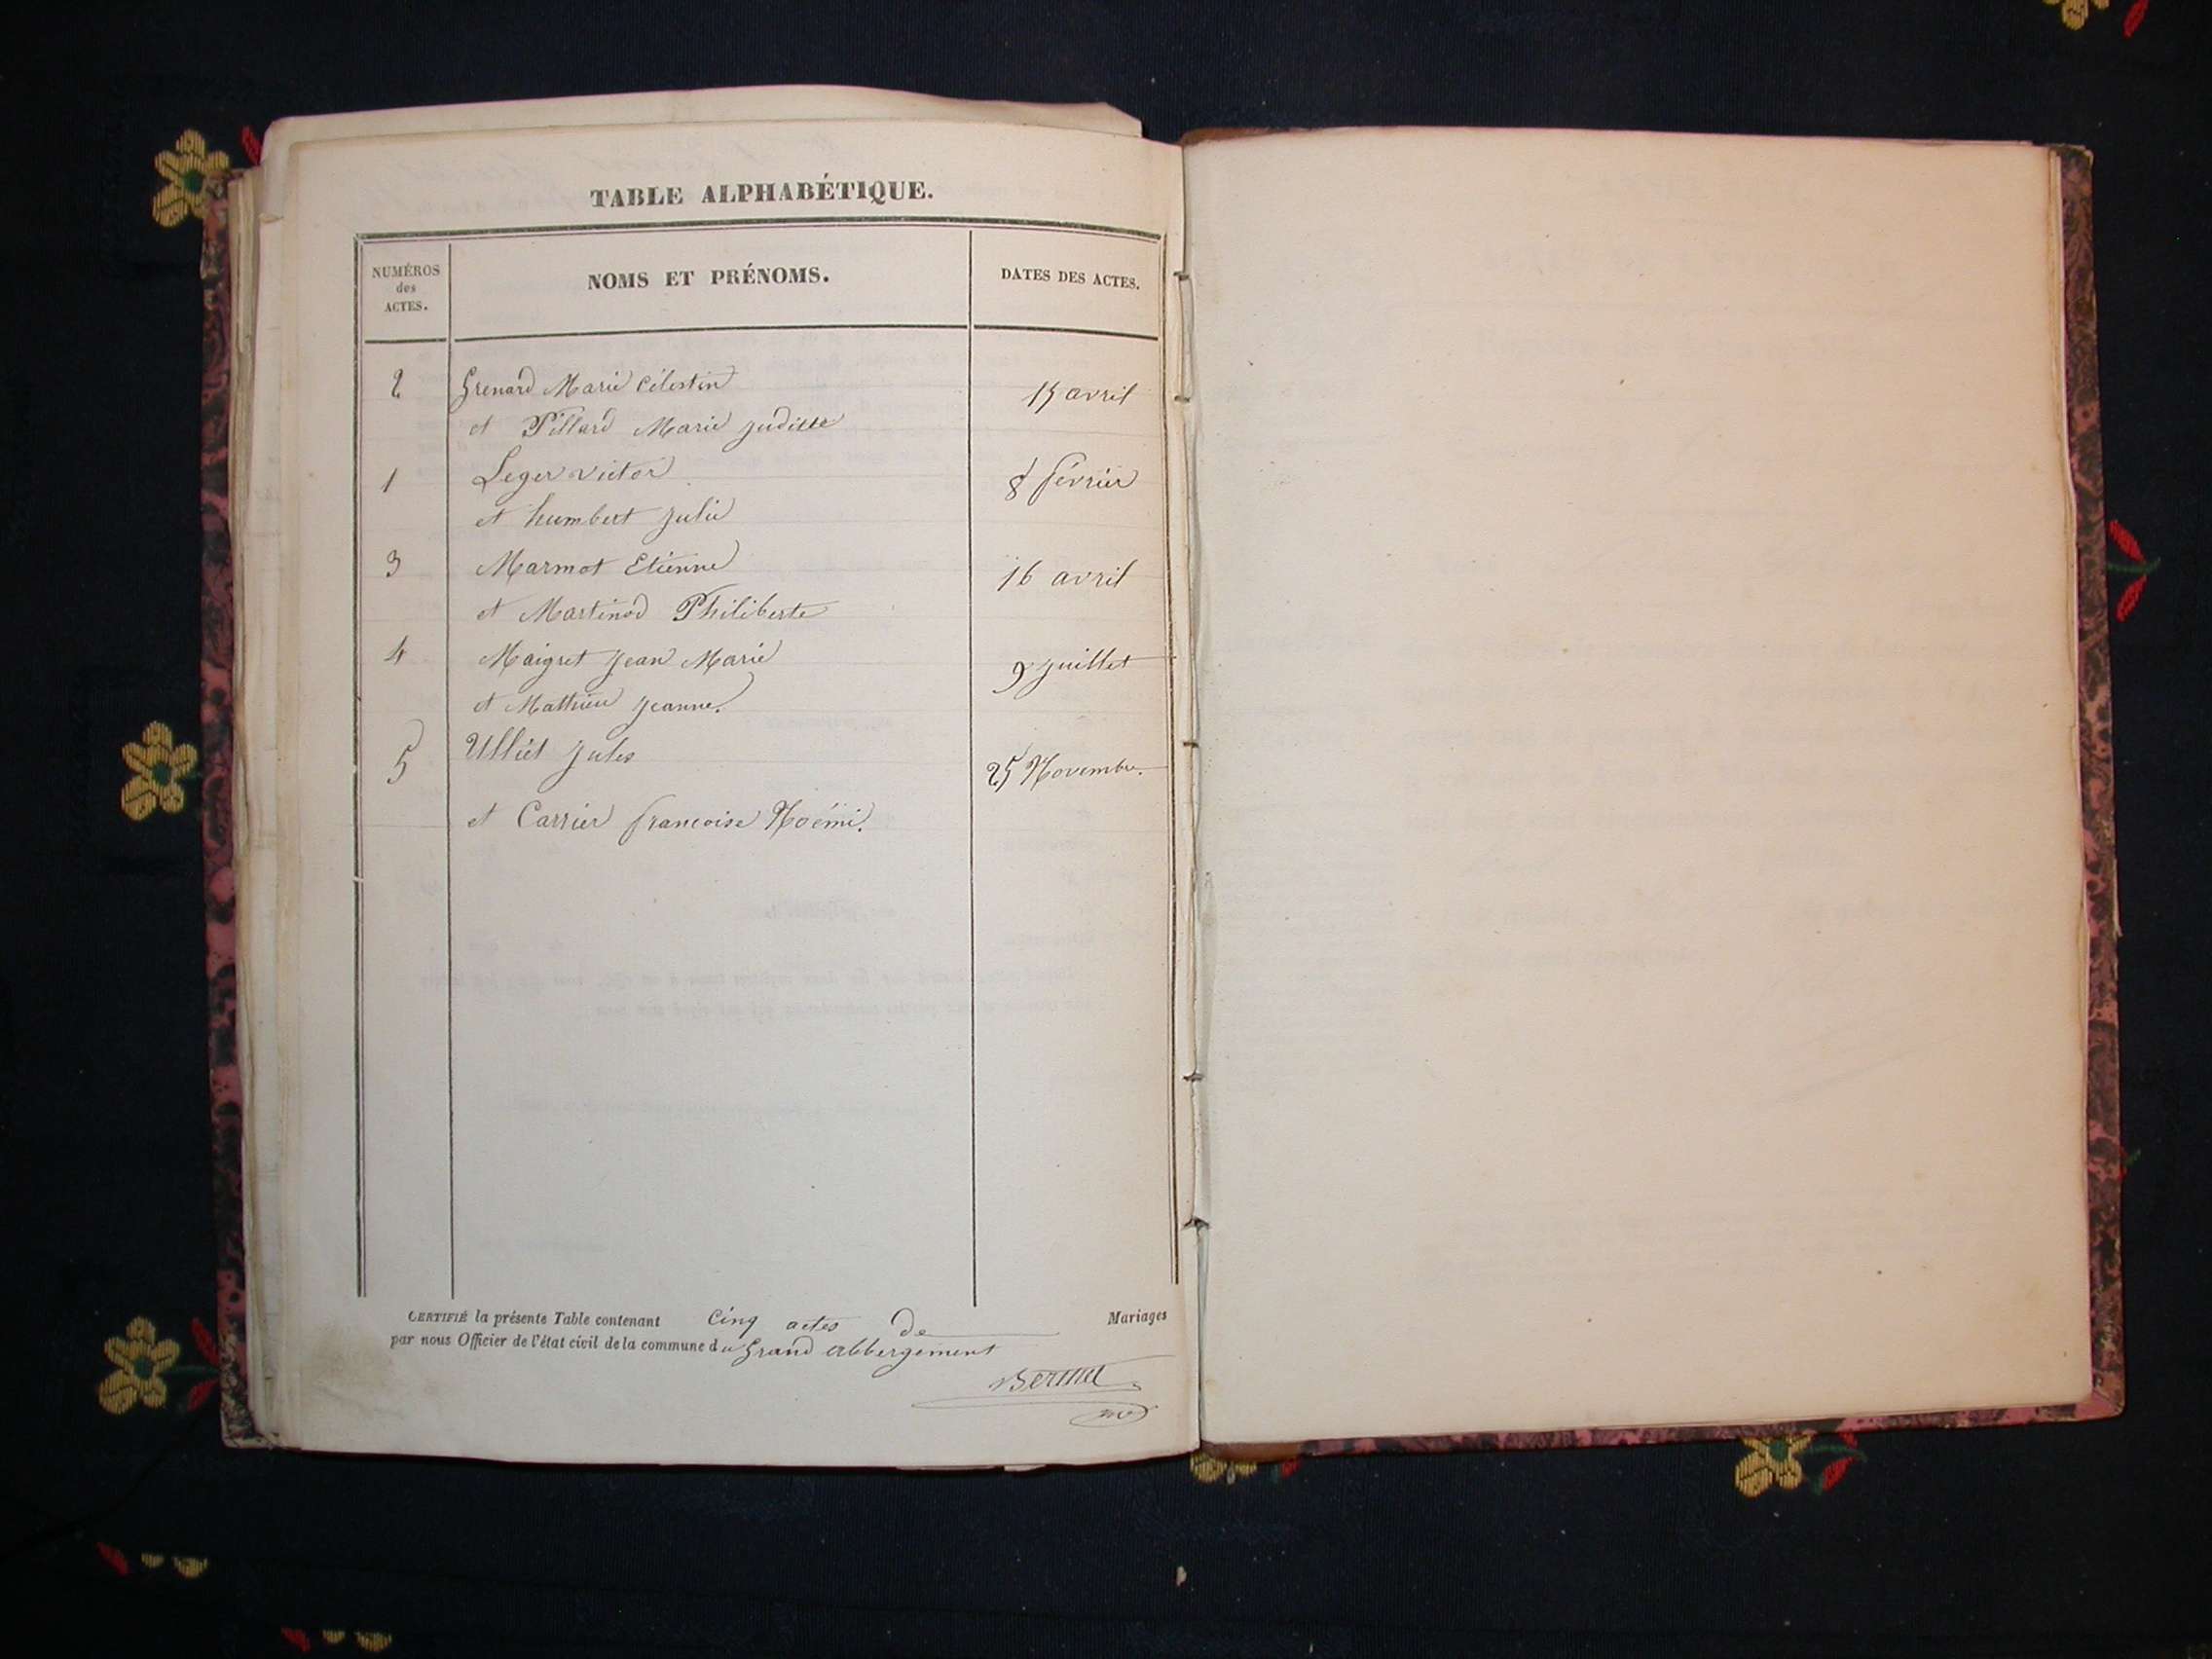 TABLE ALPHABÉTIQUE.
NUMÉROS
des
ACTES.
NOMS ET PRÉNOMS.
DATES DES ACTES.
2 Grenard Marie Célestin 15 avril
et Pillard Marie Juditte
1 Leger victor 8 février
et humbert Julie
3 Marmot Etienne 16 avril
et Martinod Philiberte
4 Maigret Jean Marie 9 Juillet
et Mathieu Jeanne.
5 Ulliet Jules 25 Novembre.
et Carrier françoise Noémi.
CERTIFIÉ la présente Table contenant Cinq actes de Mariages
par nous Officier de l'état civil de la commune du Grand Abbergement